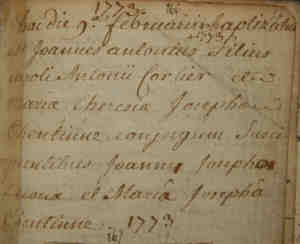 1773
hac die 9. februarii baptizatus
est Joannes antonius filius
caroli Antonii Corlier et
maria theresia Josepha
Chentinne conjugum susci
pientibus Joanni Joseph
et Maria Josepha
Chentinne 1773